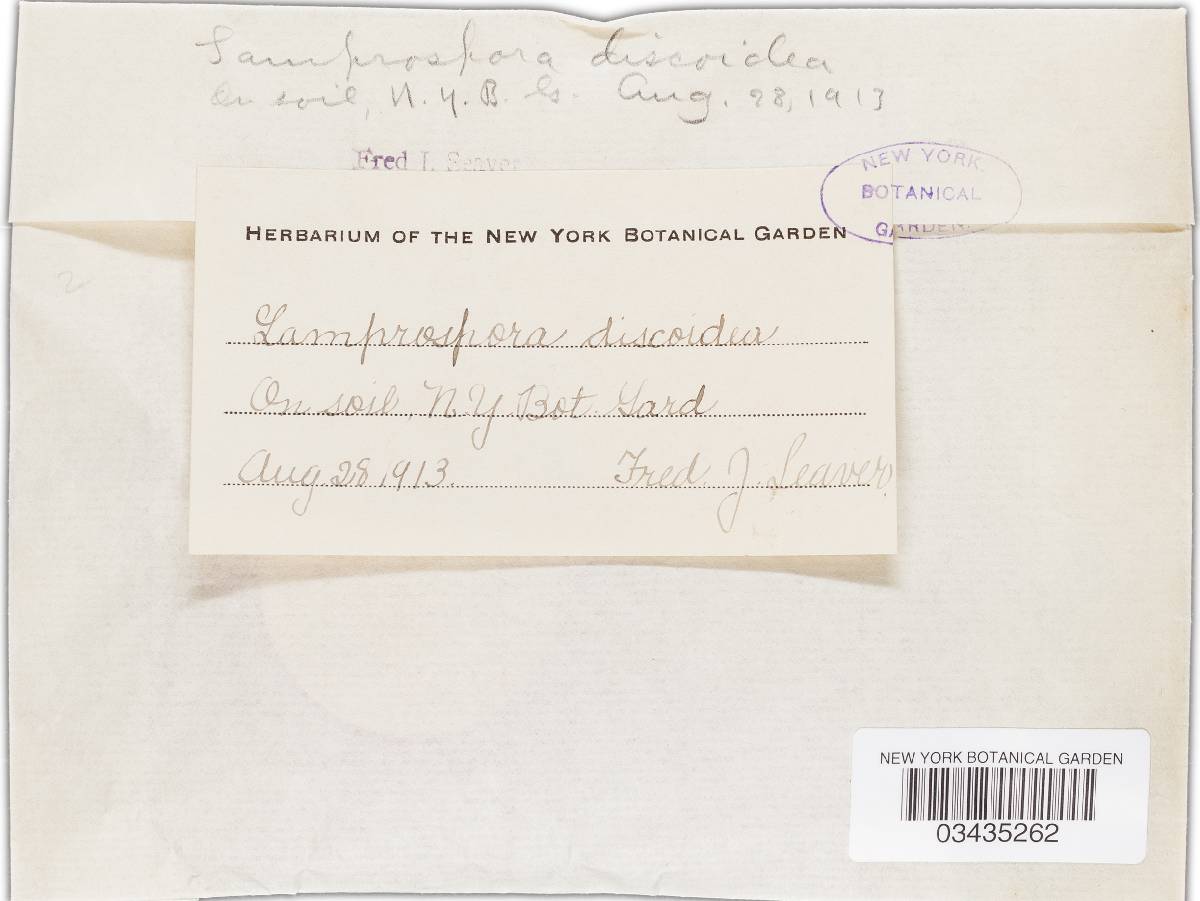 Lamprospora discoidea
On soil, N.Y.B.G. Aug. 28, 1913
Fred J. Seaver
NEW YORK
BOTANICAL
GARDEN
HERBARIUM OF THE NEW YORK BOTANICAL GARDEN
2
Lamprospora discoidea
On soil, N.Y. Bot. Gard
Aug 28, 1913. Fred. J. Seaver
NEW YORK BOTANICAL GARDEN
03435262